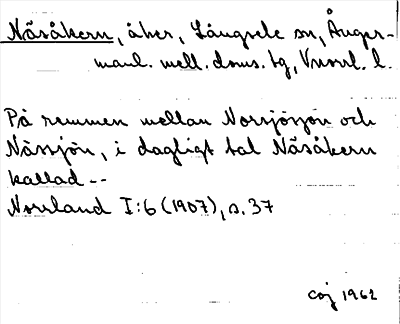 Näsåkern, åker, Långsele sn, Ånger-
manl. mell. doms. tg, Vnorrl. l.
På remmen mellan Norrsjösjön och
Nässjön, i dagligt tal Näsåkern
kallad --
Norrland I:6 (1907), s. 37
CGJ 1962